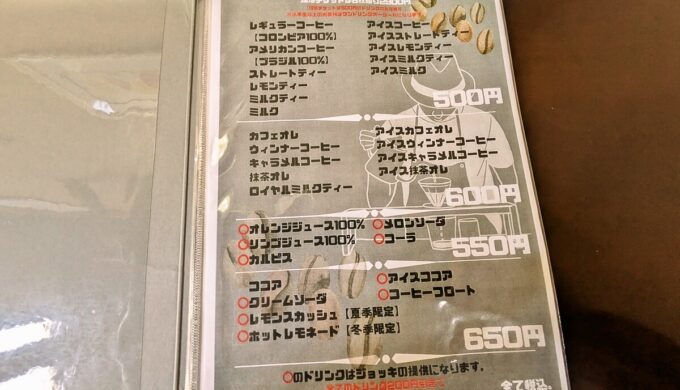 レギュラーコーヒー
【コロンビア100%】
アメリカンコーヒー
【ブラジル100%】
ストレートティー
レモンティー
ミルクティー
ミルク
アイスコーヒー
アイスストレートティー
アイスレモンティー
アイスミルクティー
アイスミルク
500円
カフェオレ
ウィンナーコーヒー
キャラメルコーヒー
抹茶オレ
ロイヤルミルクティー
アイスカフェオレ
アイスウィンナーコーヒー
アイスキャラメルコーヒー
アイス抹茶オレ
600円
○オレンジジュース100%
○リンゴジュース100%
○カルピス
○メロンソーダ
○コーラ
550円
ココア
○クリームソーダ
○レモンスカッシュ【夏季限定】
○ホットレモネード【冬季限定】
○アイスココア
○コーヒーフロート
650円
○のドリンクはジョッキの提供になります。
全てのドリンク200円引き
全て税込。